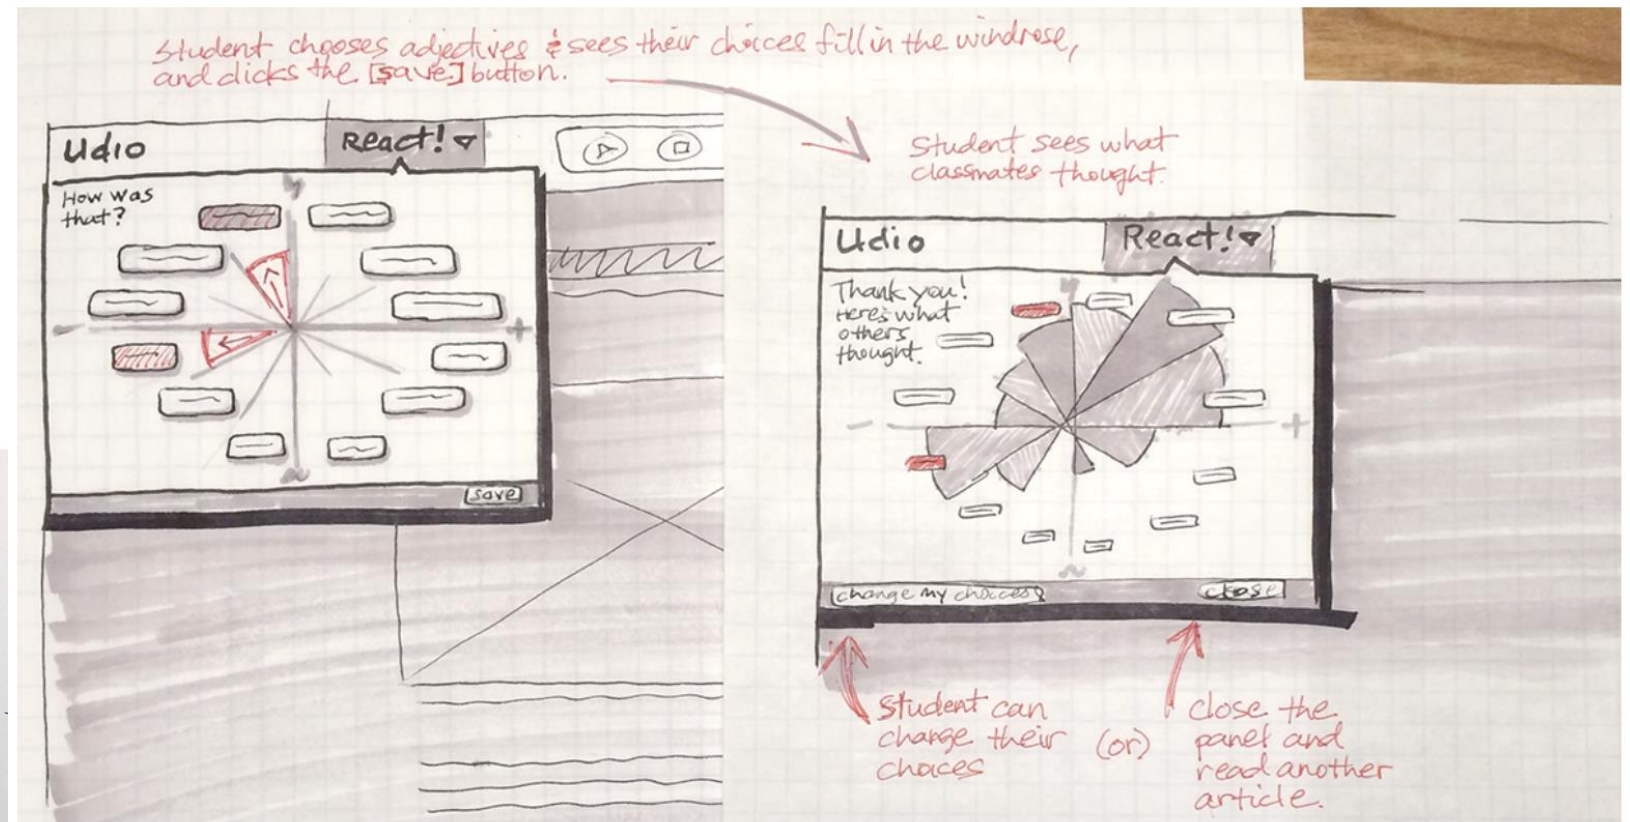 Student chooses adjectives & sees their choices fill in the windrose,
and clicks the [save] button.
Udio
React!
How was
that?
+
save
Student sees what
classmates thought.
Udio
React!
Thank you!
Here's what
others
thought.
- +
change my choices
close
Student can
change their
choices
(or)
close the
panel and
read another
article.